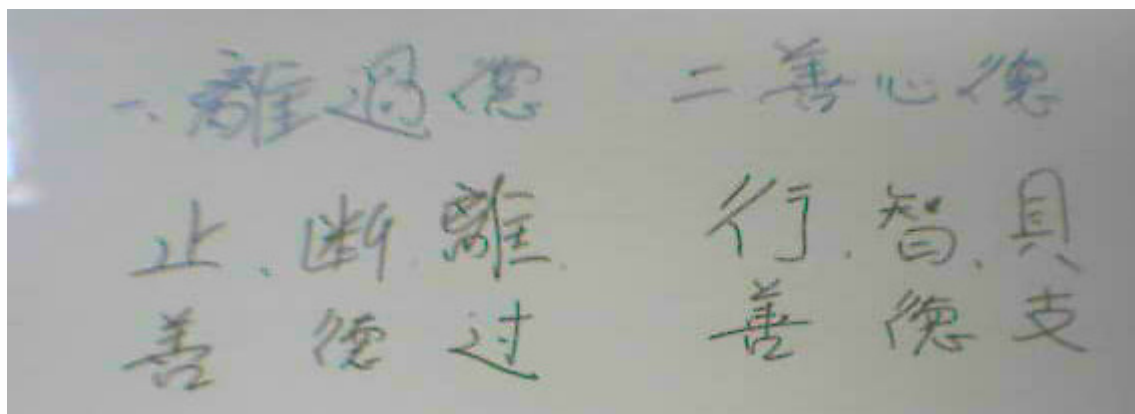 一、離過德 二善心德
止、断、離、 行、智、具
善德过 善德支